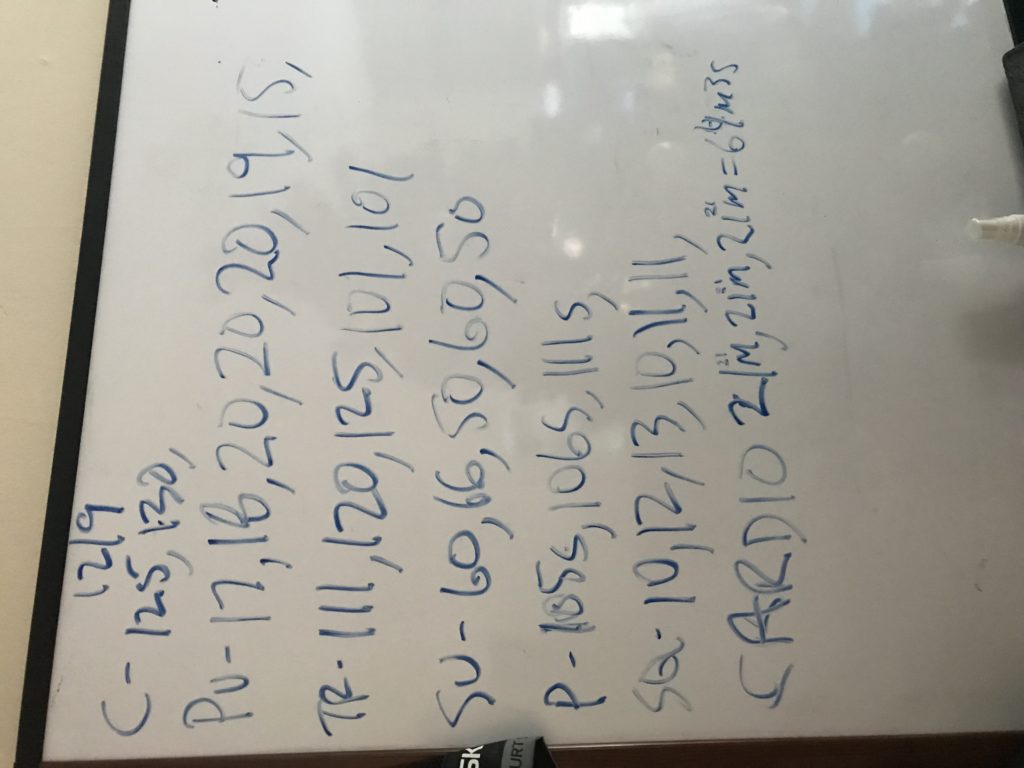 12/9
C- 125, 130,
PU- 17, 18, 20, 20, 20, 19, 15,
TR- 111, 120, 125, 101, 101
SU- 60, 66, 50, 60, 50
SK
URT
P- 105s, 106s, 111s,
SQ- 10, 12, 13, 10, 11, 11,
CARDIO 21m21, 21m21, 21m21 = 64m3s